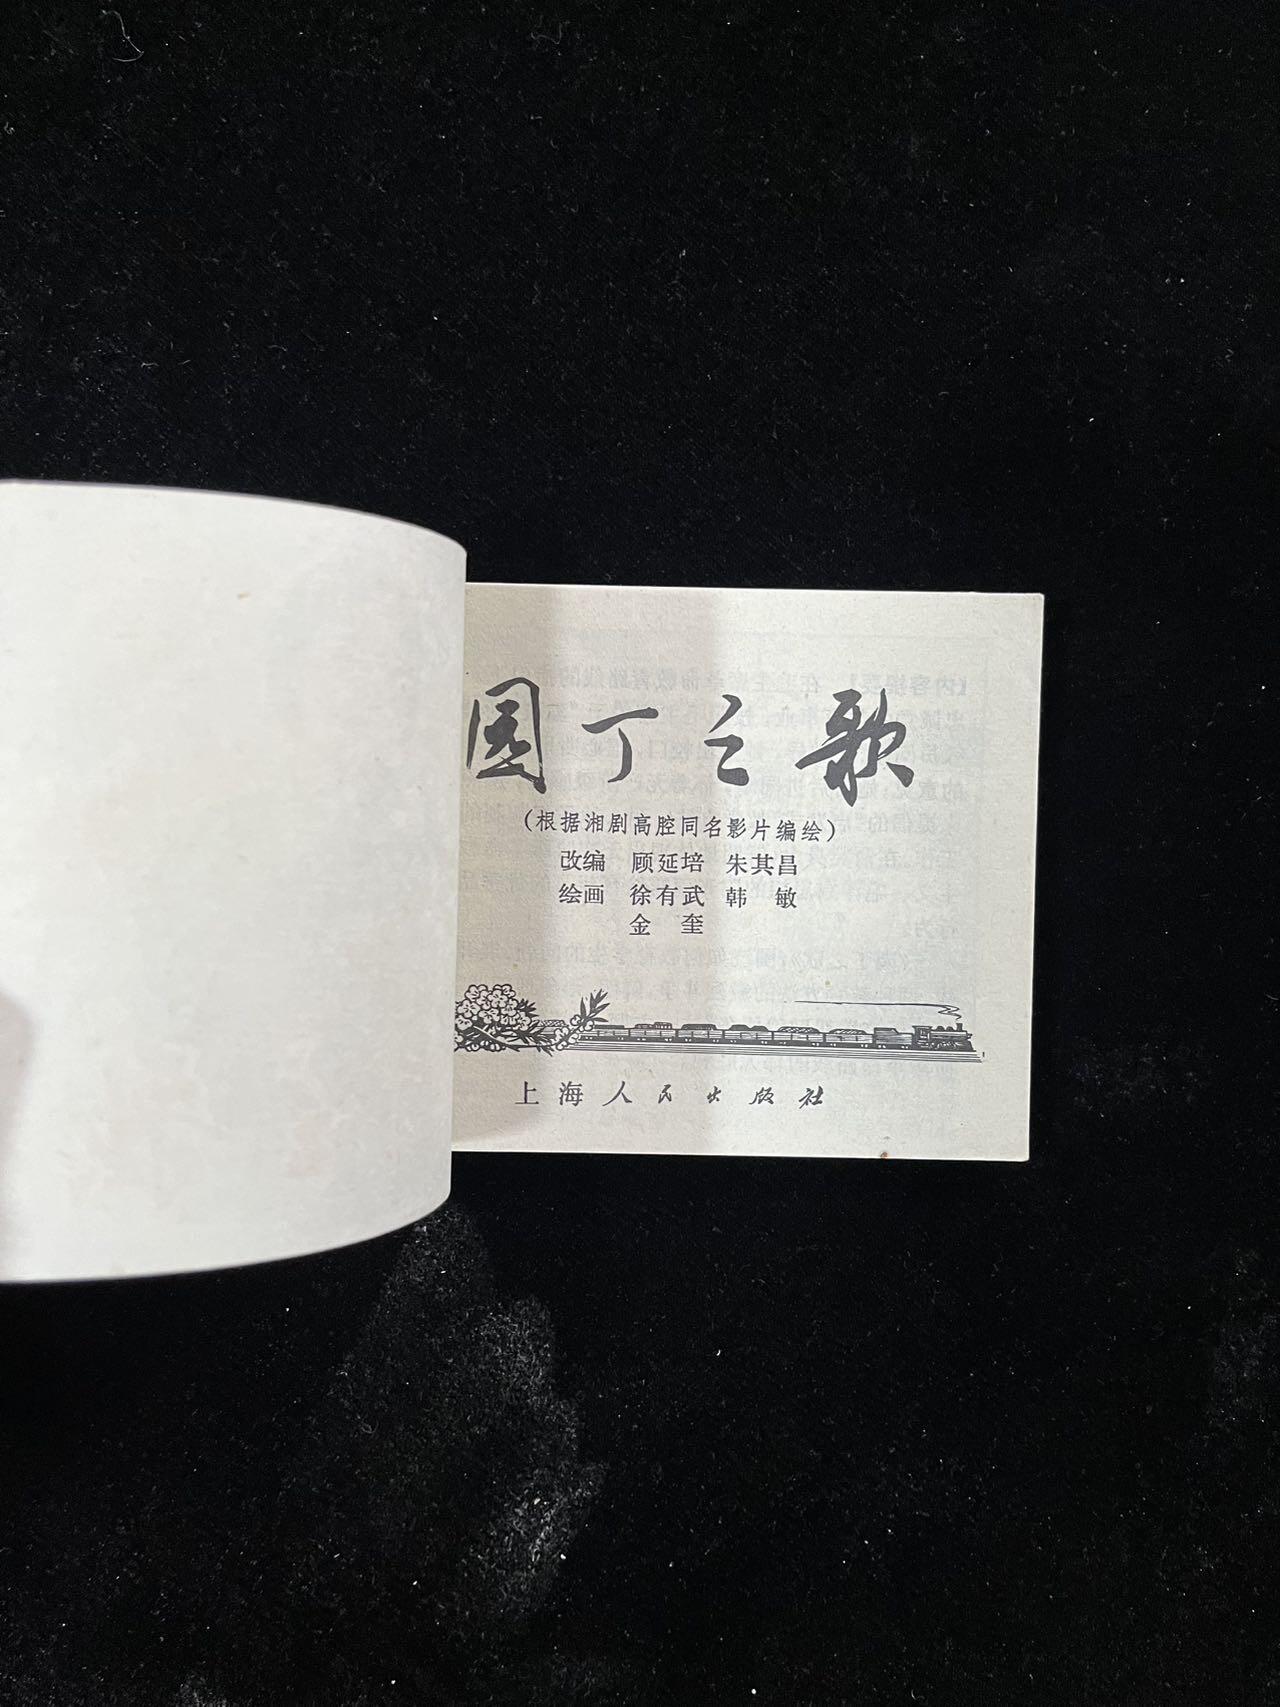 园丁之歌
(根据湘剧高腔同名影片编绘)
改编 顾延培 朱其昌
绘画 徐有武 韩 敏
金 奎
上海人民出版社